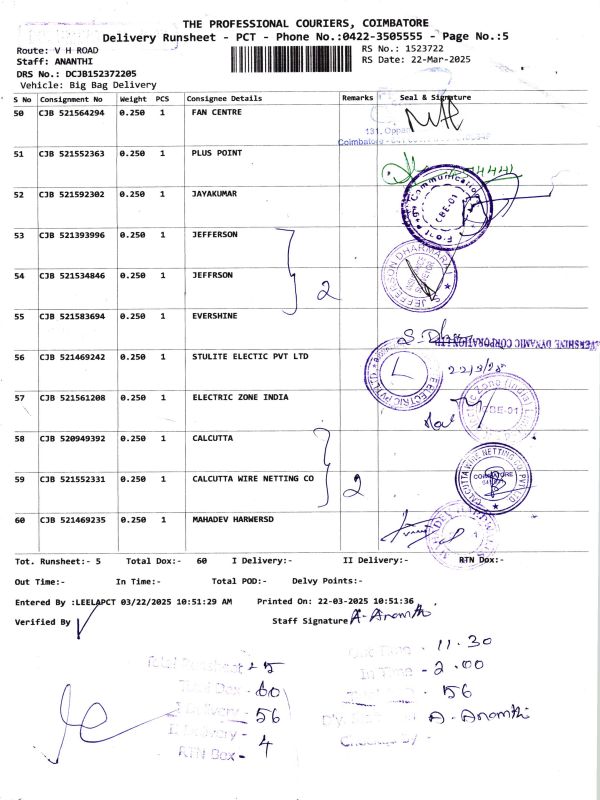 THE PROFESSIONAL COURIERS, COIMBATORE
Delivery Runsheet - PCT - Phone No.:0422-3505555 - Page No.:5
Route: V H ROAD RS No.: 1523722
Staff: ANANTHI RS Date: 22-Mar-2025
DRS No.: DCJB152372205
Vehicle: Big Bag Delivery
S No Consignment No Weight PCS Consignee Details Remarks Seal & Signature
50 CJB 521564294 0.250 1 FAN CENTRE
131, Oppan
Coimbatore
51 CJB 521552363 0.250 1 PLUS POINT
52 CJB 521592302 0.250 1 JAYAKUMAR
Front Page Communication
CBE-01
53 CJB 521393996 0.250 1 JEFFERSON
54 CJB 521534846 0.250 1 JEFFRSON 2
S. JEFFERSON DHARMARAJ
55 CJB 521583694 0.250 1 EVERSHINE
EVERSHINE DYNAMIC CORPORATION LTD
56 CJB 521469242 0.250 1 STULITE ELECTIC PVT LTD
22/3/25
57 CJB 521561208 0.250 1 ELECTRIC ZONE INDIA
CBE-01
58 CJB 520949392 0.250 1 CALCUTTA
59 CJB 521552331 0.250 1 CALCUTTA WIRE NETTING CO 2
CALCUTTA WIRE NETTING CO. PVT. LTD
COIMBATORE
60 CJB 521469235 0.250 1 MAHADEV HARWERSD
Tot. Runsheet:- 5 Total Dox:- 60 I Delivery:- II Delivery:- RTN Dox:-
Out Time:- In Time:- Total POD:- Delvy Points:-
Entered By :LEELAPCT 03/22/2025 10:51:29 AM Printed On: 22-03-2025 10:51:36
Verified By Staff Signature A. Ananthi
Total Runsheet - 5
Total Dox - 60
I Delivery - 56
II Delivery - 4
RTN Box -
Out Time - 11.30
In Time - 2.00
56
A. Ananthi
Checked By -